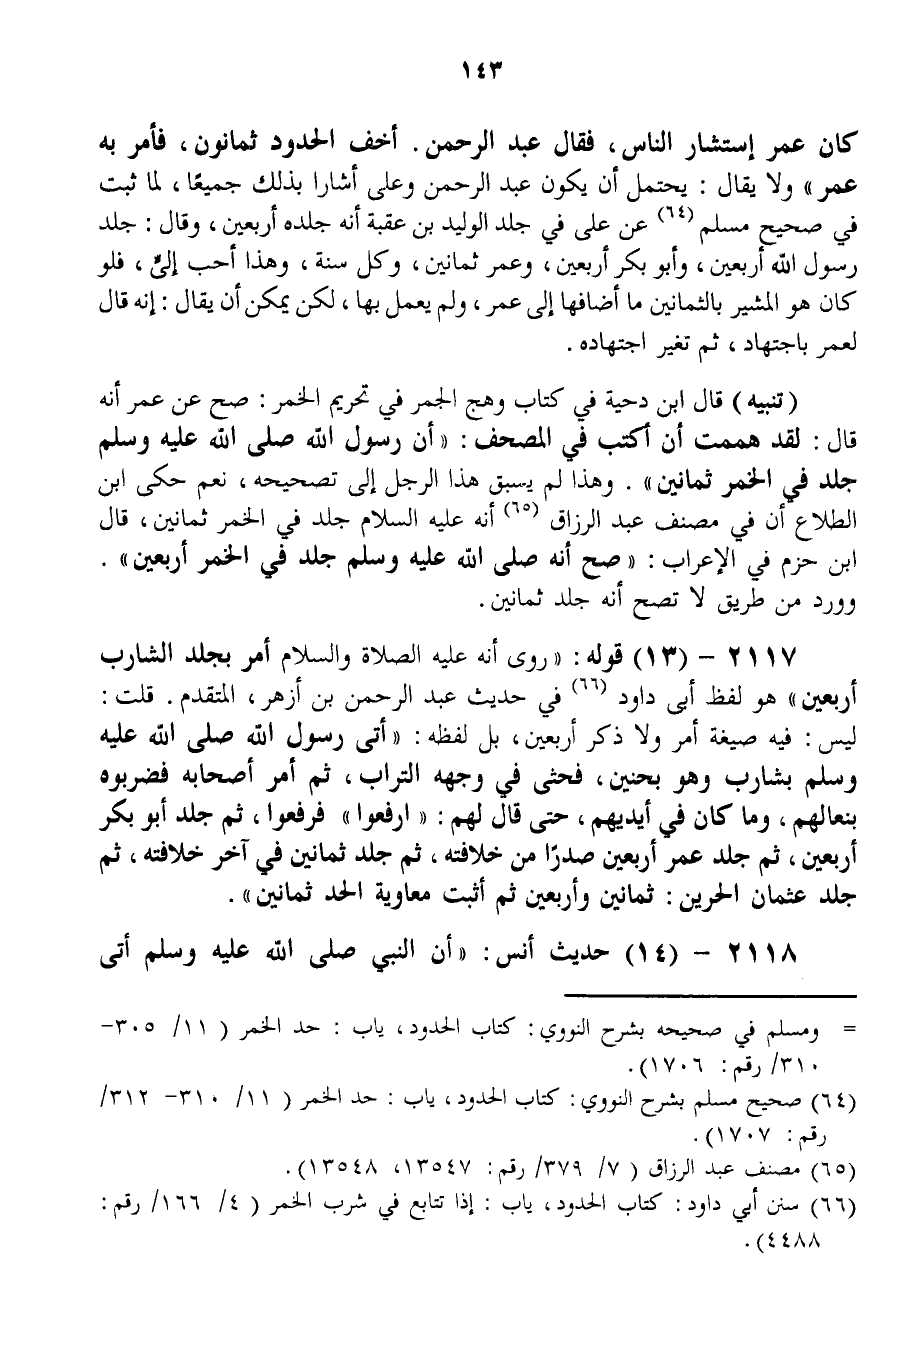 ١٤٣
كان عمر إستشار الناس ، فقال عبد الرحمن . أخف الحدود ثمانون ، فأمر به
عمر » ولا يقال : يحتمل أن يكون عبد الرحمن وعلى أشارا بذلك جميعًا ، لما ثبت
في صحيح مسلم (٦٤) عن على في جلد الوليد بن عقبة أنه جلده أربعين ، وقال : جلد
رسول الله أربعين ، وأبو بكر أربعين ، وعمر ثمانين ، وكل سنة ، وهذا أحب إلىَّ ، فلو
كان هو المشير بالثمانين ما أضافها إلى عمر ، ولم يعمل بها ، لكن يمكن أن يقال : إنه قال
لعمر باجتهاد ، ثم تغير اجتهاده .
( تنبيه ) قال ابن دحية في كتاب وهج الجمر في تحريم الخمر : صح عن عمر أنه
قال : لقد هممت أن أكتب في المصحف : « أن رسول الله صلى الله عليه وسلم
جلد في الخمر ثمانين » . وهذا لم يسبق هذا الرجل إلى تصحيحه ، نعم حكى ابن
الطلاع أن في مصنف عبد الرزاق (٦٥) أنه عليه السلام جلد في الخمر ثمانين ، قال
ابن حزم في الإعراب : « صح أنه صلى الله عليه وسلم جلد في الخمر أربعين » .
وورد من طريق لا تصح أنه جلد ثمانين .
٢١١٧ – (١٣) قوله : « روى أنه عليه الصلاة والسلام أمر بجلد الشارب
أربعين » هو لفظ أبى داود (٦٦) في حديث عبد الرحمن بن أزهر ، المتقدم . قلت :
ليس : فيه صيغة أمر ولا ذكر أربعين ، بل لفظه : « أتى رسول الله صلى الله عليه
وسلم بشارب وهو بحنين ، فحثى في وجهه التراب ، ثم أمر أصحابه فضربوه
بنعالهم ، وما كان في أيديهم ، حتى قال لهم : « ارفعوا » فرفعوا ، ثم جلد أبو بكر
أربعين ، ثم جلد عمر أربعين صدرًا من خلافته ، ثم جلد ثمانين في آخر خلافته ، ثم
جلد عثمان الحرين : ثمانين وأربعين ثم أثبت معاوية الحد ثمانين » .
٢١١٨ – (١٤) حديث أنس : « أن النبي صلى الله عليه وسلم أتى
= ومسلم في صحيحه بشرح النووي : كتاب الحدود ، ياب : حد الخمر ( ١١/ ٣٠٥-
٣١٠/ رقم : ١٧٠٦) .
(٦٤) صحيح مسلم بشرح النووي : كتاب الحدود ، ياب : حد الخمر ( ١١/ ٣١٠- ٣١٢/
رقم : ١٧٠٧) .
(٦٥) مصنف عبد الرزاق ( ٧/ ٣٧٩/ رقم : ١٣٥٤٧، ١٣٥٤٨) .
(٦٦) سنن أبي داود : كتاب الحدود ، ياب : إذا تتابع في شرب الخمر ( ٤/ ١٦٦/ رقم :
٤٤٨٨) .